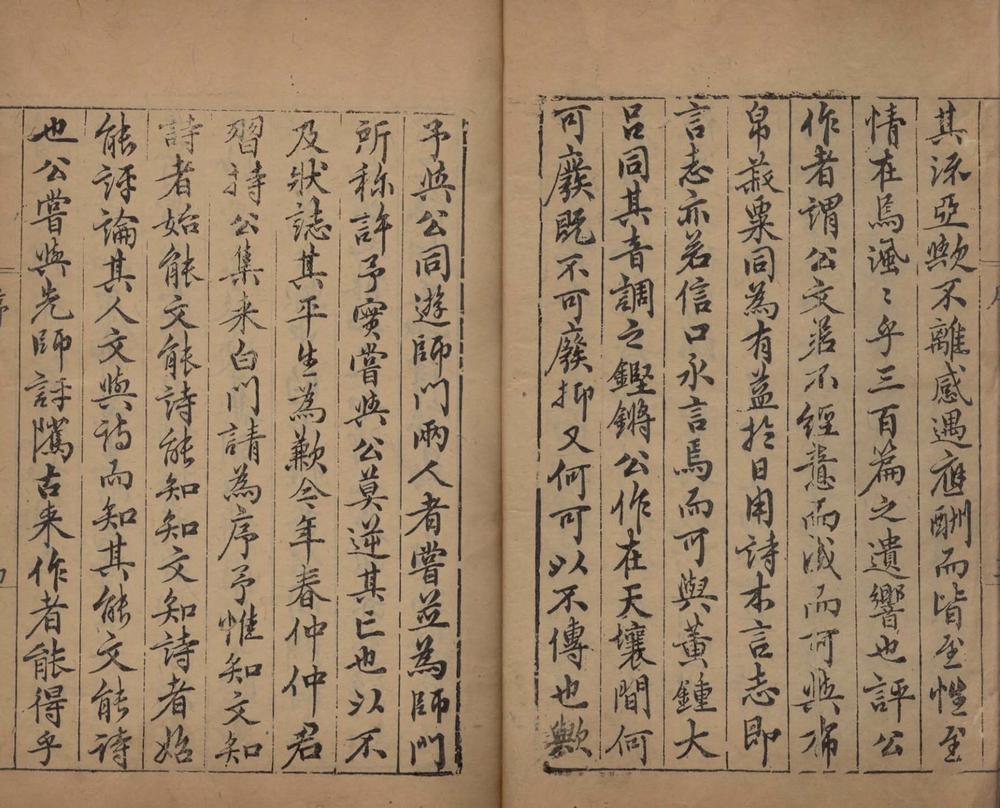 其流亞歟不離感遇應酬而皆至性至
情在焉渢〻乎三百篇之遺響也評公
作者謂公文若不經意而成而可與布
帛菽粟同為有益於日用詩本言志即
言志亦若信口永言焉而可與黃鍾大
呂同其音調之鏗鏘公作在天壤間何
可廢既不可廢抑又何可以不傳也歟
予與公同遊師門兩人者嘗並為師門
所称許予實嘗與公莫逆其亡也以不
及狀誌其平生為歉今年春仲仲君
習持公集来白門請為序予惟知文知
詩者始能文能詩能知知文知詩者始
能評論其人文與詩而知其能文能詩
也公嘗與先師評隲古来作者能得乎
序